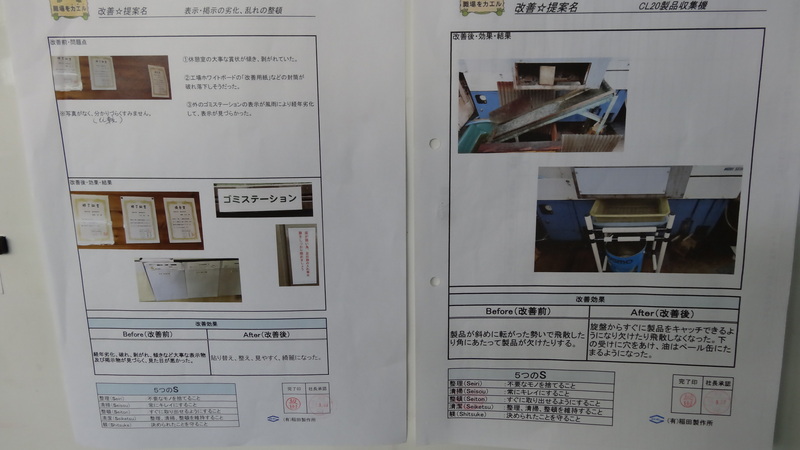 職場をカエル
改善☆提案名 表示・掲示の劣化、乱れの整頓
改善前・問題点
①休憩室の大事な賞状が傾き、剥がれていた。
②工場ホワイトボードの「改善用紙」などの封筒が
破れ落下しそうだった。
③外のゴミステーションの表示が風雨により経年劣化
して、表示が見づらかった。
※写真がなく、分かりづらくすみません。
改善後・効果・結果
ゴミステーション
改善効果
Before(改善前) After(改善後)
経年劣化、破れ、剥がれ、傾きなど大事な表示物
及び掲示物が見づらく、見た目が悪かった。
貼り替え、整え、見やすく、綺麗になった。
5つのS
整理(Seiri) :不要なモノを捨てること
清掃(Seisou) :常にキレイにすること
整頓(Seiton) :すぐに取り出せるようにすること
清潔(Seiketsu) :整理、清掃、整頓を維持すること
躾(Shitsuke) :決められたことを守ること
完了印 社長承認
(有)稲田製作所
職場をカエル
改善☆提案名 CL20製品収集機
改善後・効果・結果
改善効果
Before(改善前) After(改善後)
製品が斜めに転がった勢いで飛散した
り角にあたって製品が欠けたりする。
旋盤からすぐに製品をキャッチできるよ
うになり欠けたり飛散しなくなった。下
の受けに穴をあけ、油はペール缶にた
まるようになった。
5つのS
整理(Seiri) :不要なモノを捨てること
清掃(Seisou) :常にキレイにすること
整頓(Seiton) :すぐに取り出せるようにすること
清潔(Seiketsu) :整理、清掃、整頓を維持すること
躾(Shitsuke) :決められたことを守ること
完了印 社長承認
(有)稲田製作所